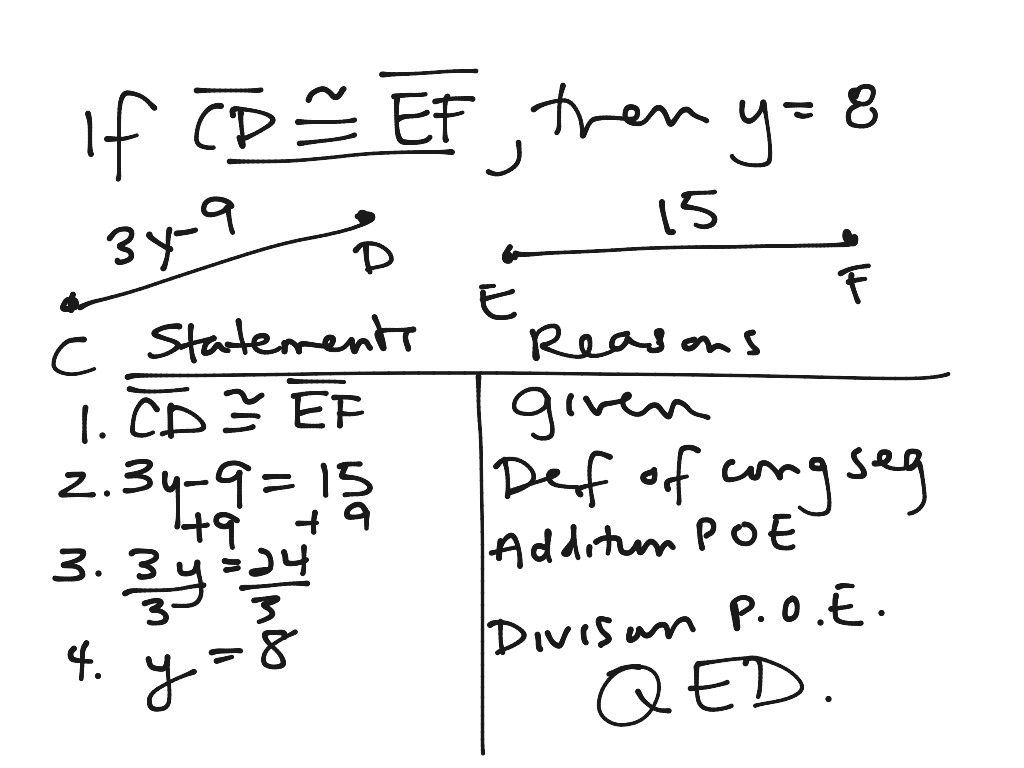 If CD ≅ EF, then y = 8
3y-9
15
D
E
F
C
Statements Reasons
1. CD ≅ EF given
2. 3y-9 = 15 Def of cong seg
+9 +9
3. 3y = 24 Addition POE
3 3
4. y = 8 Division P.O.E.
QED.